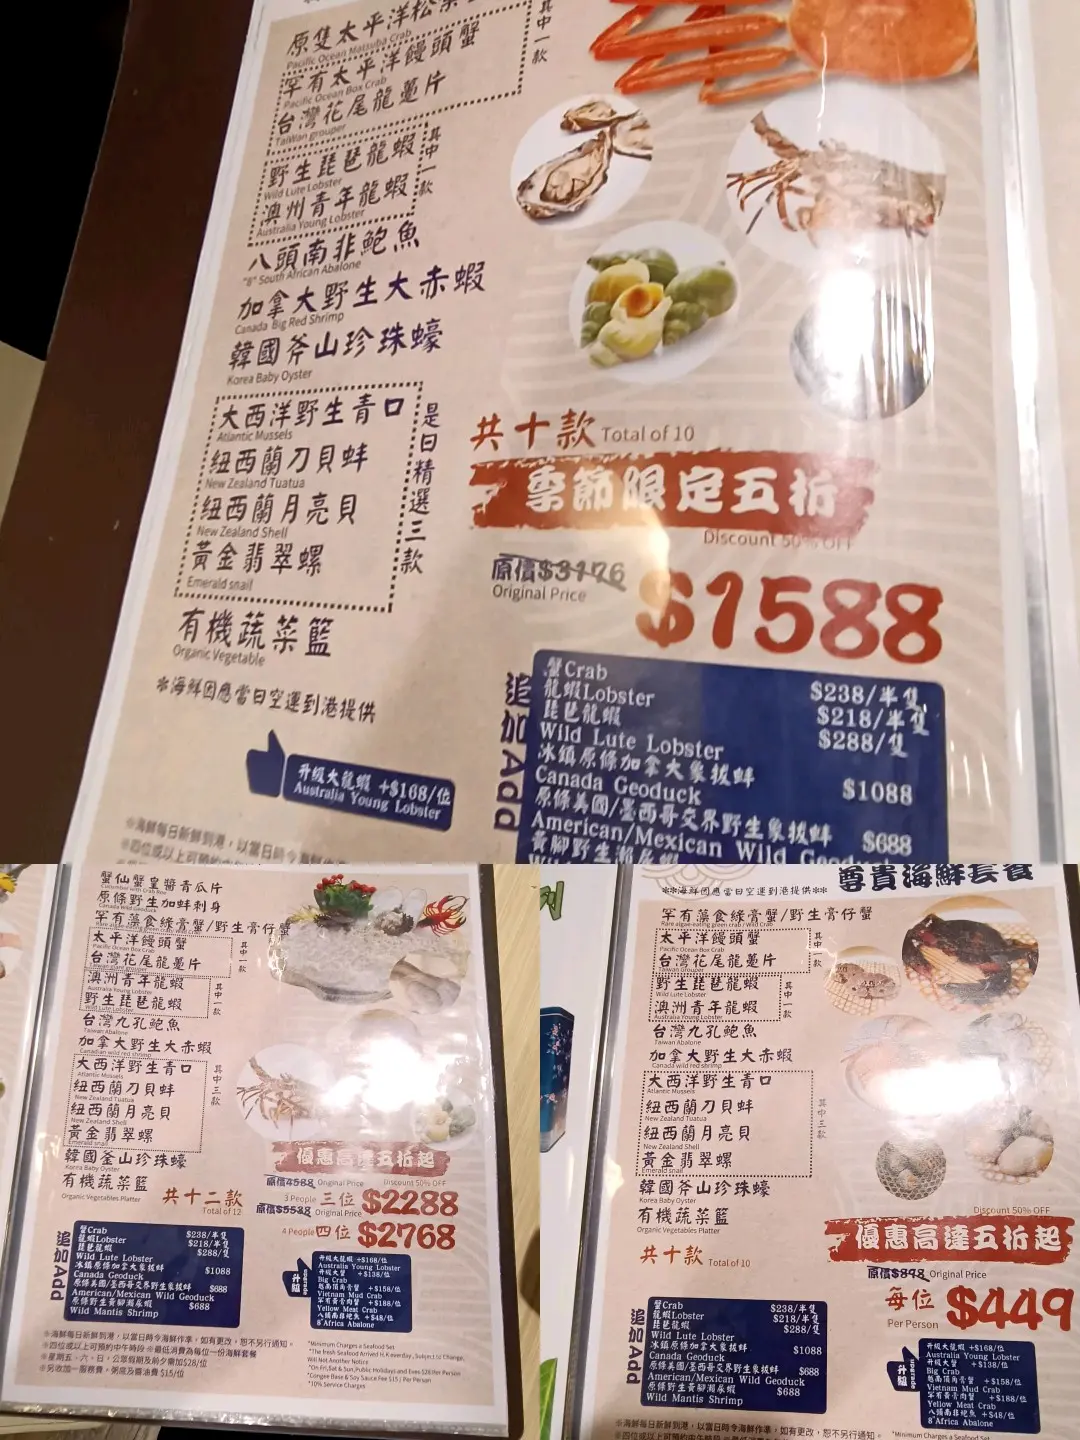 原隻太平洋松葉
Pacific Ocean Matsuba Crab
罕有太平洋饅頭蟹
Pacific Ocean Box Crab
台灣花尾龍躉片
TaiWan grouper
其中一款
野生琵琶龍蝦
Wild Lute Lobster
澳州青年龍蝦
Australia Young Lobster
其中一款
八頭南非鮑魚
"8" South African Abalone
加拿大野生大赤蝦
Canada Big Red Shrimp
韓國斧山珍珠蠔
Korea Baby Oyster
大西洋野生青口
Atlantic Mussels
紐西蘭刀貝蚌
New Zealand Tuatua
紐西蘭月亮貝
New Zealand Shell
黃金翡翠螺
Emerald snail
是日精選三款
有機蔬菜籃
Organic Vegetable
※海鮮因應當日空運到港提供
升級大龍蝦 +$168/位
Australia Young Lobster
共十款 Total of 10
季節限定五折
Discount 50% OFF
原價$3176
Original Price
$1588
追加Add
蟹Crab $238/半隻
龍蝦Lobster $218/半隻
琵琶龍蝦 $288/隻
Wild Lute Lobster
冰鎮原條加拿大象拔蚌 $1088
Canada Geoduck
原條美國/墨西哥交界野生象拔蚌 $688
American/Mexican Wild
黃腳野生瀨尿蝦
※海鮮每日新鮮到港，以當日時令海鮮
蟹仙蟹皇醬青瓜片
原條野生加蚌刺身
罕有藻食綠膏蟹/野生膏仔蟹
太平洋饅頭蟹
Pacific Ocean Box Crab
台灣花尾龍躉片
Taiwan Grouper
其中一款
澳洲青年龍蝦
Australia Young Lobster
野生琵琶龍蝦
Wild Lute Lobster
其中一款
台灣九孔鮑魚
Taiwan Abalone
加拿大野生大赤蝦
Canadian wild red shrimp
大西洋野生青口
Atlantic Mussels
紐西蘭刀貝蚌
New Zealand Tuatua
紐西蘭月亮貝
New Zealand Shell
黃金翡翠螺
Emerald snail
其中三款
韓國釜山珍珠蠔
Korea Baby Oyster
有機蔬菜籃
Organic Vegetables Platter
共十二款
Total of 12
優惠高達五折起
Discount 50% OFF
原價4588 Original Price
3 People 三位 $2288
原價$5538 Original Price
4 People 四位 $2768
追加Add
蟹Crab $238/隻
龍蝦Lobster $218/半隻
琵琶龍蝦 $288/隻
Wild Lute Lobster
冰鎮原條加拿大象拔蚌 $1088
Canada Geoduck
原條美國/墨西哥交界野生象拔蚌 $688
American/Mexican Wild Geoduck
原條野生黃腳瀨尿蝦 $688
Wild Mantis Shrimp
升級 upgrade
升級大龍蝦 +$168/位
Australia Young Lobster
升級大蟹 +$138/位
Big Crab
越南頂角膏蟹 +$158/位
Vietnam Mud Crab
罕有黃膏肉蟹 +$188/位
Yellow Meat Crab
八頭南非鮑魚 +$48/位
8"Africa Abalone
※海鮮每日新鮮到港，以當日時令海鮮作準，如有更改，恕不另行通知。
※四位或以上可預約中午時段 ※最低消費為每位一份海鮮套餐
※星期五、六、日，公眾假期及前夕需加$28/位
※另收加一服務費，粥底及醬油費 $15/位
*Minimum Charges a Seafood Set
*The fresh Seafood Arrived H.K everday, Subject to Change,
Will Not Another Notice
*On Fri,Sat & Sun,Public Holidays and Eves $28 Per Person
*Congee Base & Soy Sauce Fee $15 / Per Person
*10% Service Charges
尊貴海鮮套餐
※※海鮮因應當日空運到港提供※※
罕有藻食綠膏蟹/野生膏仔蟹
太平洋饅頭蟹
Pacific Ocean Box Crab
台灣花尾龍躉片
Taiwan Grouper
其中一款
野生琵琶龍蝦
Wild Lute Lobster
澳洲青年龍蝦
Australia Young Lobster
其中一款
台灣九孔鮑魚
Taiwan Abalone
加拿大野生大赤蝦
Canada wild red shrimp
大西洋野生青口
Atlantic Mussels
紐西蘭刀貝蚌
New Zealand Tuatua
紐西蘭月亮貝
New Zealand Shell
黃金翡翠螺
Emerald snail
其中三款
韓國斧山珍珠蠔
Korea Baby Oyster
有機蔬菜籃
Organic Vegetables Platter
共十款 Total of 10
Discount 50% OFF
優惠高達五折起
原價$898 Original Price
每位 $449
Per Person
追加Add
蟹Crab $238/半隻
龍蝦Lobster $218/半隻
琵琶龍蝦 $288/隻
Wild Lute Lobster
冰鎮原條加拿大象拔蚌 $1088
Canada Geoduck
原條美國/墨西哥交界野生象拔蚌 $688
American/Mexican Wild Geoduck
原條野生黃腳瀨尿蝦 $688
Wild Mantis Shrimp
升級 upgrade
升級大龍蝦 +$168/位
Australia Young Lobster
升級大蟹 +$138/位
Big Crab
越南頂角膏蟹 +$158/位
Vietnam Mud Crab
罕有黃膏肉蟹 +$188/位
Yellow Meat Crab
八頭南非鮑魚 +$48/位
8"Africa Abalone
※海鮮每日新鮮到港，以當日時令海鮮作準，如有更改，恕不另行通知。
*Minimum Charges a Seafood Set